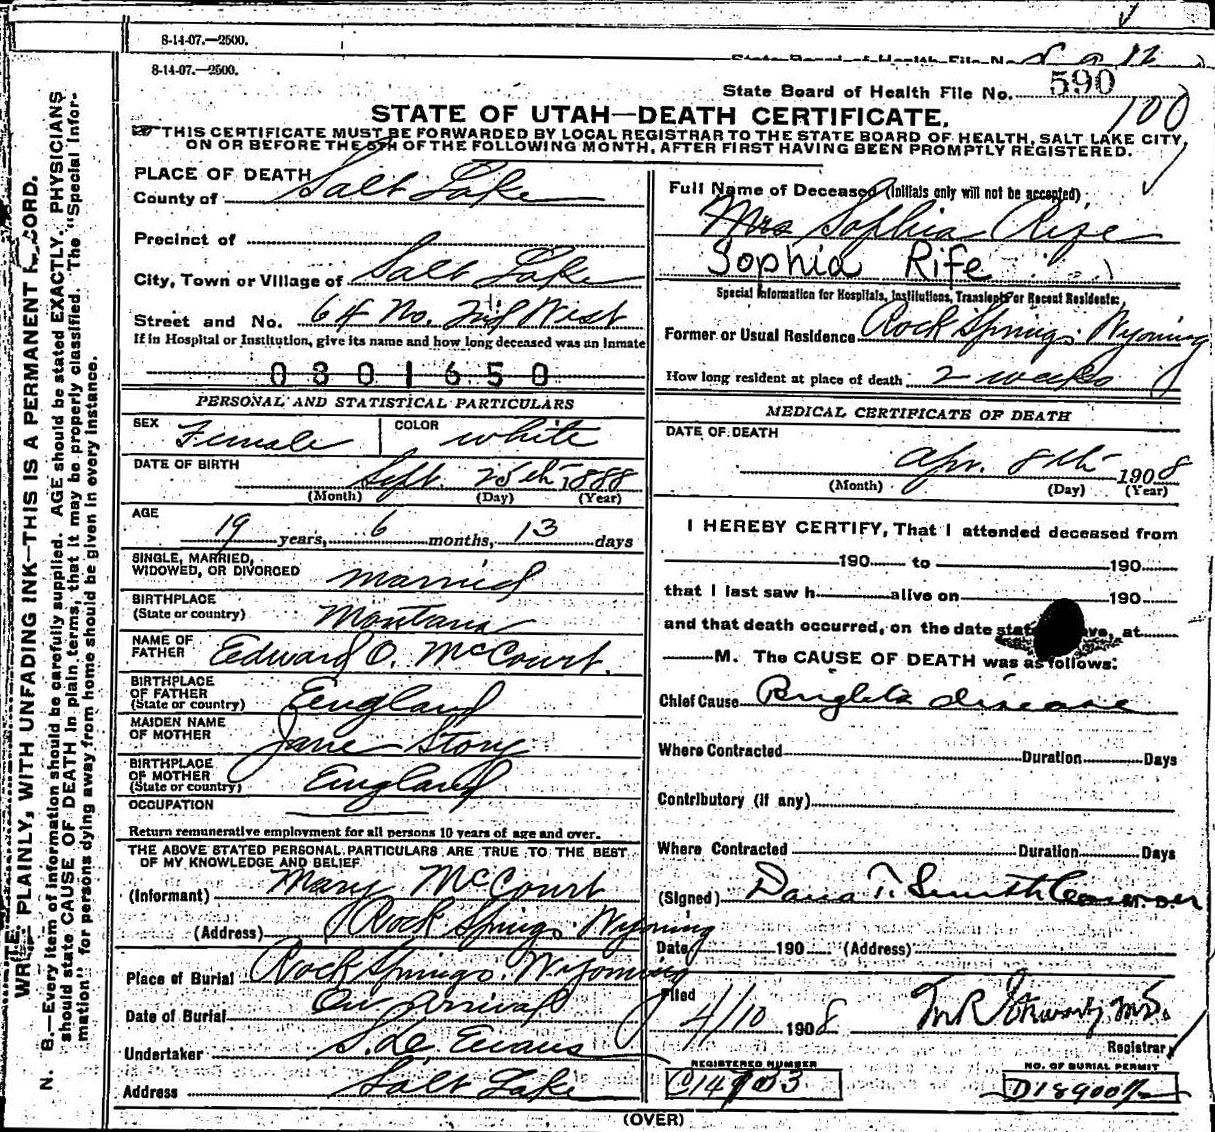 8-14-07.—2500.
8-14-07.—2500.
State Board of Health File No. 590
100
STATE OF UTAH—DEATH CERTIFICATE.
THIS CERTIFICATE MUST BE FORWARDED BY LOCAL REGISTRAR TO THE STATE BOARD OF HEALTH, SALT LAKE CITY,
ON OR BEFORE THE 5TH OF THE FOLLOWING MONTH, AFTER FIRST HAVING BEEN PROMPTLY REGISTERED.
WRITE PLAINLY, WITH UNFADING INK—THIS IS A PERMANENT RECORD.
N. B.—Every item of information should be carefully supplied. AGE should be stated EXACTLY. PHYSICIANS
should state CAUSE OF DEATH in plain terms, that it may be properly classified. The "Special Infor-
mation" for persons dying away from home should be given in every instance.
PLACE OF DEATH
County of Salt Lake
Precinct of
City, Town or Village of Salt Lake
Street and No. 64 No. 2nd West
If in Hospital or Institution, give its name and how long deceased was an inmate
0301650
PERSONAL AND STATISTICAL PARTICULARS
SEX Female COLOR white
DATE OF BIRTH Sept. 25th 1888
(Month) (Day) (Year)
AGE
19 years, 6 months, 13 days
SINGLE, MARRIED,
WIDOWED, OR DIVORCED married
BIRTHPLACE
(State or country) Montana
NAME OF
FATHER Edward O. McCourt.
BIRTHPLACE
OF FATHER
(State or country) England
MAIDEN NAME
OF MOTHER Jane Story
BIRTHPLACE
OF MOTHER
(State or country) England
OCCUPATION
Return remunerative employment for all persons 10 years of age and over.
THE ABOVE STATED PERSONAL PARTICULARS ARE TRUE TO THE BEST
OF MY KNOWLEDGE AND BELIEF
(Informant) Mary McCourt
(Address) Rock Springs Wyoming
Place of Burial Rock Springs. Wyoming
Date of Burial On Arrival
Undertaker S. D. Evans
Address Salt Lake
Full Name of Deceased (Initials only will not be accepted)
Mrs Sophia Rife
Sophia Rife
Special Information for Hospitals, Institutions, Transients or Recent Residents:
Former or Usual Residence Rock Springs. Wyoming
How long resident at place of death 2 weeks
MEDICAL CERTIFICATE OF DEATH
DATE OF DEATH
Apr. 8th 1908
(Month) (Day) (Year)
I HEREBY CERTIFY, That I attended deceased from
190 to 190
that I last saw h alive on 190
and that death occurred, on the date stated above, at
M. The CAUSE OF DEATH was as follows:
Chief Cause Brights disease
Where Contracted Duration Days
Contributory (if any)
Where Contracted Duration Days
(Signed) Dana T. Smith Coroner
Date 190 (Address)
Filed
4/10 1908
M.D.
Registrar
REGISTERED NUMBER
NO. OF BURIAL PERMIT
(OVER)